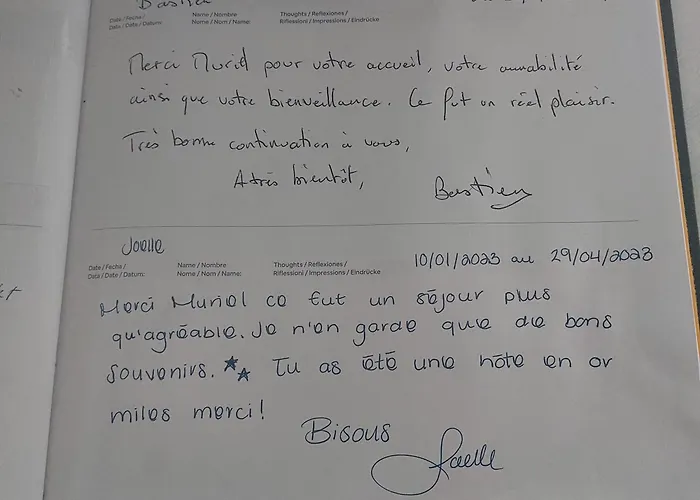 Date / Fecha /
Data / Date / Datum:
Name / Nombre
Nome / Nom / Name:
Thoughts / Reflexiones /
Riflessioni / Impressions / Eindrücke
Merci Muriel pour votre accueil, votre amabilité
ainsi que votre bienveillance. Ce fut un réel plaisir.
Très bonne continuation à vous,
A très bientôt,
Bastien
Joelle
Date / Fecha /
Data / Date / Datum:
Name / Nombre
Nome / Nom / Name:
Thoughts / Reflexiones /
Riflessioni / Impressions / Eindrücke
10/01/2023 au 29/04/2023
Merci Muriel ce fut un séjour plus
qu'agréable. Je n'en garde que de bons
souvenirs. Tu as été une hôte en or
milles merci !
Bisous
Joelle